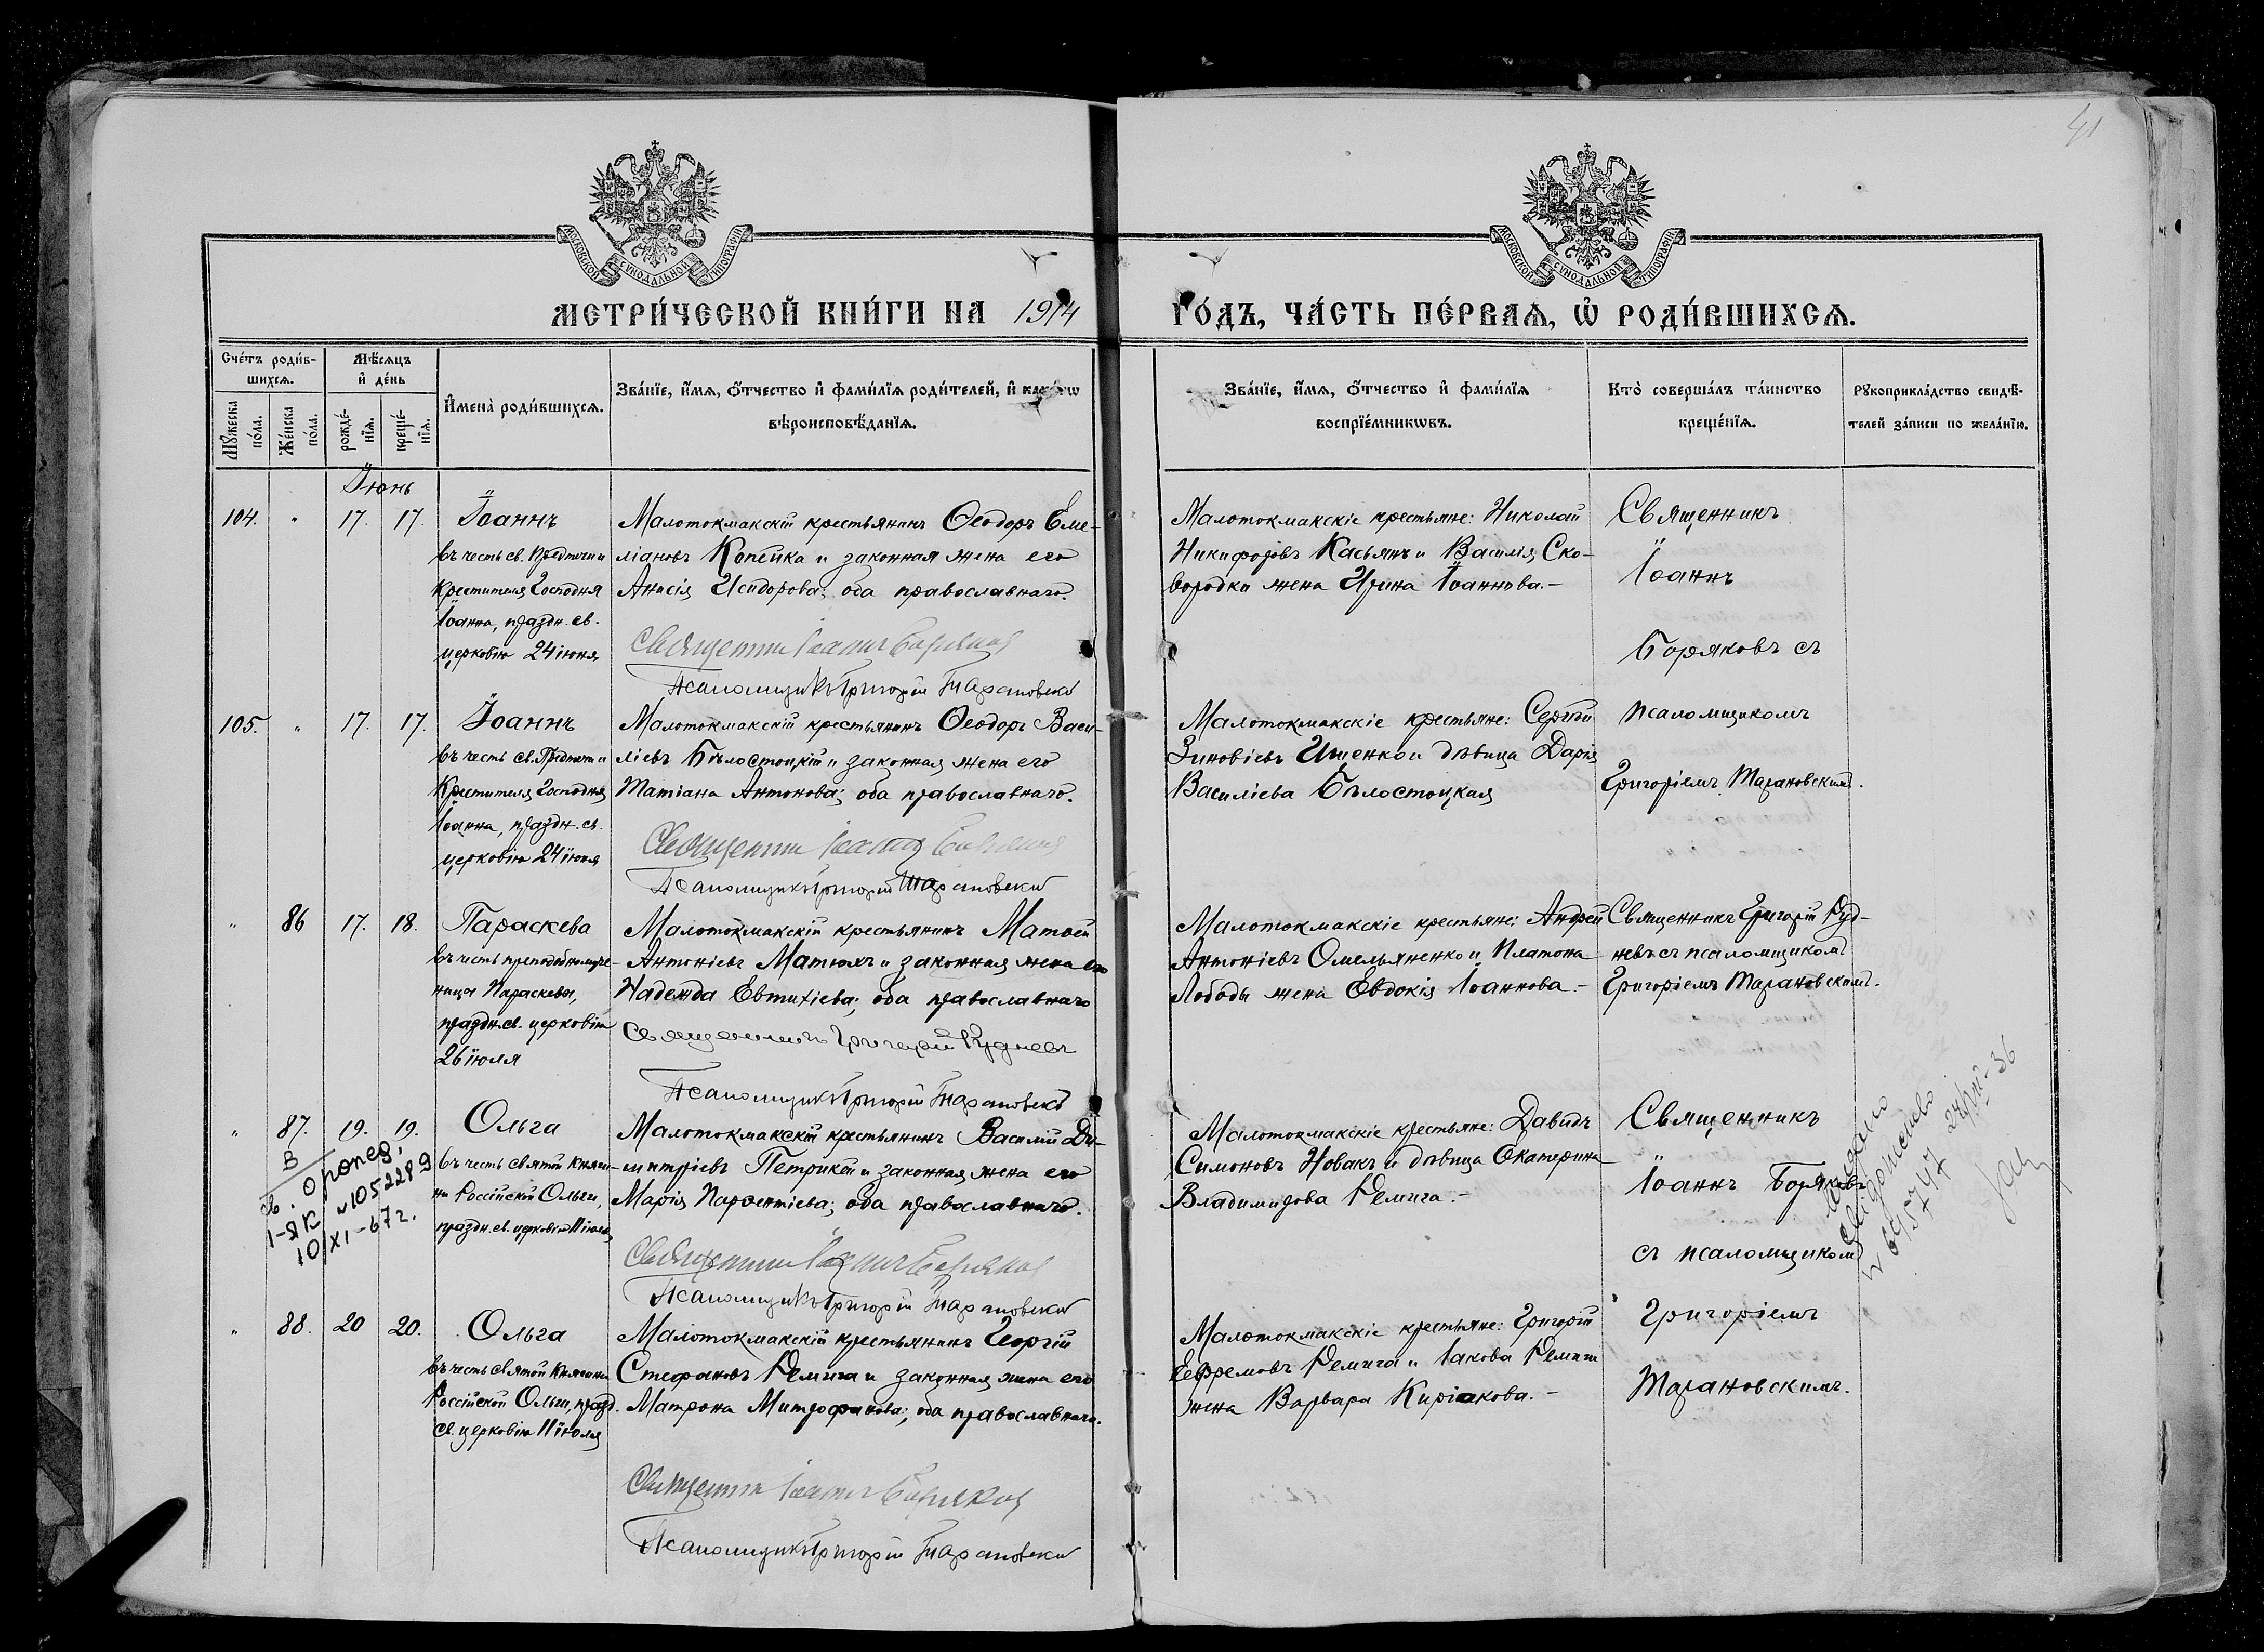 41
МОСКОВСКОЙ СѴНОДАЛЬНОЙ ТИПОГРАФІИ
МОСКОВСКОЙ СѴНОДАЛЬНОЙ ТИПОГРАФІИ
МЕТРИ́ЧЕСКОЙ КНИ́ГИ НА 1914 ГО́ДЪ, ЧА́СТЬ ПЕ́РВАѦ, Ѡ҆ РОДИ́ВШИХСѦ.
Сче́тъ роди́в-
шихсѧ.
Мѣ́сѧцъ
и҆ де́нь
Мꙋ́жеска
по́ла.
Же́нска
по́ла.
рожде́-
нїѧ.
креще́-
нїѧ.
И҆мена̀ роди́вшихсѧ.
Зва́нїе, и҆́мѧ, ѻ҆́тчество и҆ фами́лїѧ роди́телей, и҆ како́гѡ
вѣроисповѣ́данїѧ.
Зва́нїе, и҆́мѧ, ѻ҆́тчество и҆ фами́лїѧ
воспрїе́мникѡвъ.
Кто̀ соверша́лъ та́инство
креще́нїѧ.
Рꙋкоприкла́дство свидѣ́-
телей за́писи по жела́нїю.
Іюнь
104. " 17. 17. Іоаннъ
въ честь св. Предтечи и
Крестителя Господня
Іоанна, праздн. св.
церковію 24 іюня
Малотокмакскій крестьянинъ Ѳеодоръ Еме-
ліановъ Копейка и законная жена его
Анисія Исидорова; оба православнаго.
Священникъ Іоаннъ Боряковъ
Псаломщикъ Григорій Тарановскій
Малотокмакскіе крестьяне: Николай
Никифоровъ Касьянъ и Василія Ско-
вородки жена Ирина Іоаннова.-
Священникъ
Іоаннъ
Боряковъ съ
105. " 17. 17. Іоаннъ
въ честь св. Предтечи и
Крестителя Господня
Іоанна, праздн. св.
церковію 24 іюня
Малотокмакскій крестьянинъ Ѳеодоръ Васи-
ліевъ Бѣлостоцкій и законная жена его
Татіана Антонова; оба православнаго.
Священникъ Іоаннъ Боряковъ
Псаломщикъ Григорій Тарановскій
Малотокмакскіе крестьяне: Сергѣй
Зиновіевъ Ищенко и дѣвица Дарія
Василіева Бѣлостоцкая
псаломщикомъ
Григоріемъ Тарановскимъ.
" 86 17. 18. Параскева
въ честь преподобномуче-
ницы Параскевы,
праздн. св. церковію
26 іюля
Малотокмакскій крестьянинъ Матѳей
Антоніевъ Матюхъ и законная жена его
Надежда Евтихіева; оба православнаго
Священникъ Григорій Рудневъ
Псаломщикъ Григорій Тарановскій
Малотокмакскіе крестьяне: Андрей
Антоніевъ Омельяненко и Платона
Лободы жена Евдокія Іоаннова.-
Священникъ Григорій Руд-
невъ съ псаломщикомъ
Григоріемъ Тарановскимъ.
" 87. 19. 19. Ольга
въ честь святой Княги-
ни Россійской Ольги,
праздн. св. церковію 11 іюля
Малотокмакскій крестьянинъ Василій Ди-
митріевъ Петрикѣй и законная жена его
Марія Парѳентіева; оба православнаго.
Священникъ Іоаннъ Боряковъ
Псаломщикъ Григорій Тарановскій
Малотокмакскіе крестьяне: Давидъ
Симоновъ Новакъ и дѣвица Екатерина
Владимирова Ремига.-
Священникъ
Іоаннъ Боряковъ
съ псаломщикомъ
1-ЯК №1052289
10/XI-67 г.
" 88. 20 20. Ольга
въ честь святой Княгини
Россійской Ольги, празд.
св. церковію 11 іюля
Малотокмакскій крестьянинъ Георгій
Стефановъ Ремига и законная жена его
Матрона Митрофанова; оба православнаго.
Священникъ Іоаннъ Боряковъ
Псаломщикъ Григорій Тарановскій
Малотокмакскіе крестьяне: Григорій
Ефремовъ Ремига и Іакова Ремиги
жена Варвара Киріакова.-
Григоріемъ
Тарановскимъ.